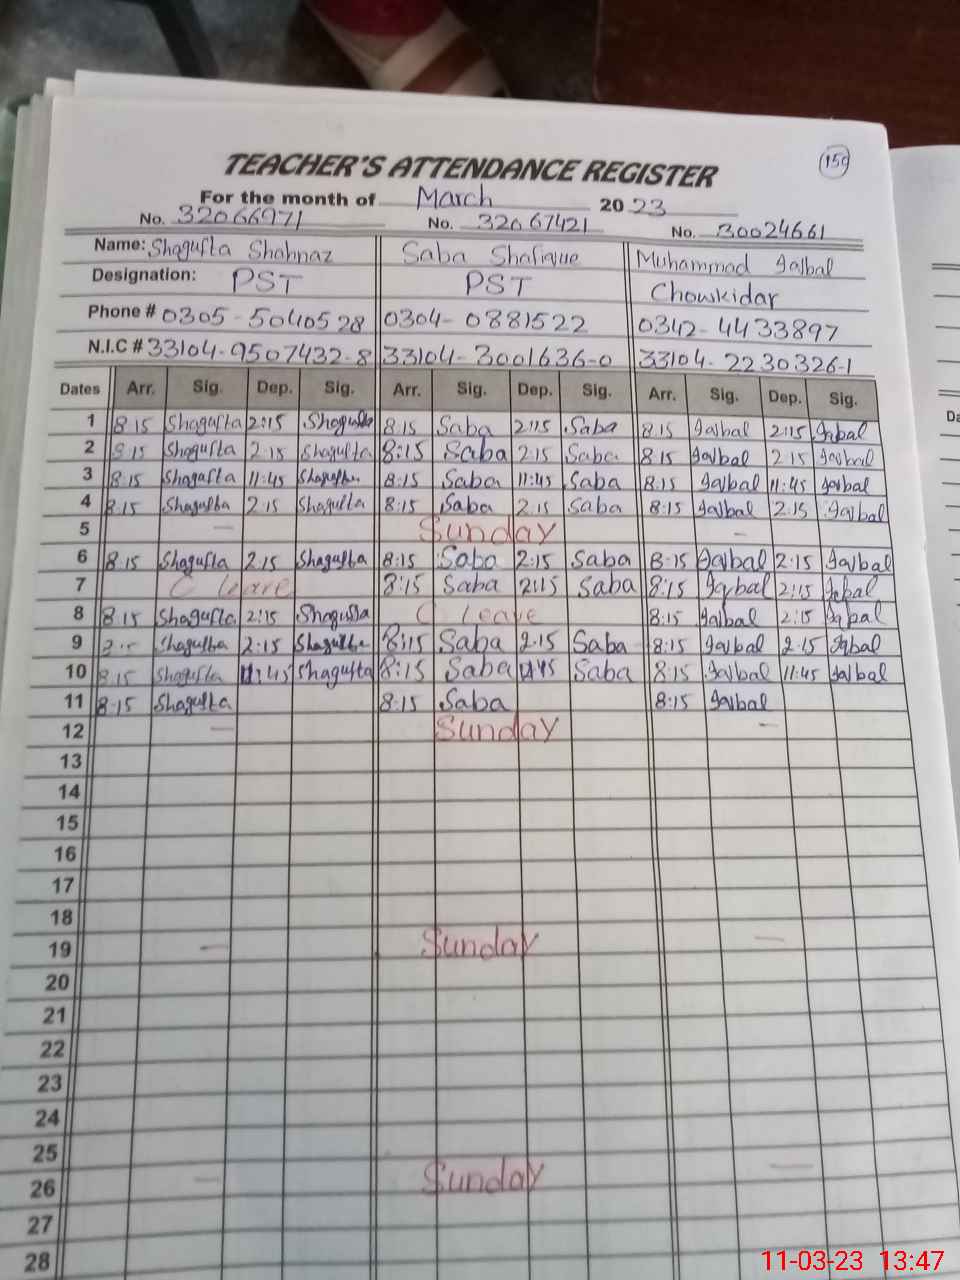 150
TEACHER'S ATTENDANCE REGISTER
For the month of March 2023
No. 32066971 No. 32067421 No. 30024661
Name: Shagufta Shahnaz Saba Shafique Muhammad Iqbal
Designation: PST PST Chowkidar
Phone # 0305-5040528 0304-0881522 0342-4433897
N.I.C # 33104-9507432-8 33104-3001636-0 33104-2230326-1
Dates Arr. Sig. Dep. Sig. Arr. Sig. Dep. Sig. Arr. Sig. Dep. Sig.
1 8:15 Shagufta 2:15 Shagufta 8:15 Saba 2:15 Saba 8:15 Iqbal 2:15 Iqbal
2 8:15 Shagufta 2:15 Shagufta 8:15 Saba 2:15 Saba 8:15 Iqbal 2:15 Iqbal
3 8:15 Shagufta 11:45 Shagufta 8:15 Saba 11:45 Saba 8:15 Iqbal 11:45 Iqbal
4 8:15 Shagufta 2:15 Shagufta 8:15 Saba 2:15 Saba 8:15 Iqbal 2:15 Iqbal
5 — Sunday —
6 8:15 Shagufta 2:15 Shagufta 8:15 Saba 2:15 Saba 8:15 Iqbal 2:15 Iqbal
7 C leave 8:15 Saba 2:15 Saba 8:15 Iqbal 2:15 Iqbal
8 8:15 Shagufta 2:15 Shagufta C leave 8:15 Iqbal 2:15 Iqbal
9 Shagufta 2:15 Shagufta 8:15 Saba 2:15 Saba 8:15 Iqbal 2:15 Iqbal
10 8:15 Shagufta 11:45 Shagufta 8:15 Saba 11:45 Saba 8:15 Iqbal 11:45 Iqbal
11 8:15 Shagufta 8:15 Saba 8:15 Iqbal
12 — Sunday —
13
14
15
16
17
18
19 — Sunday —
20
21
22
23
24
25
26 — Sunday —
27
28
11-03-23 13:47